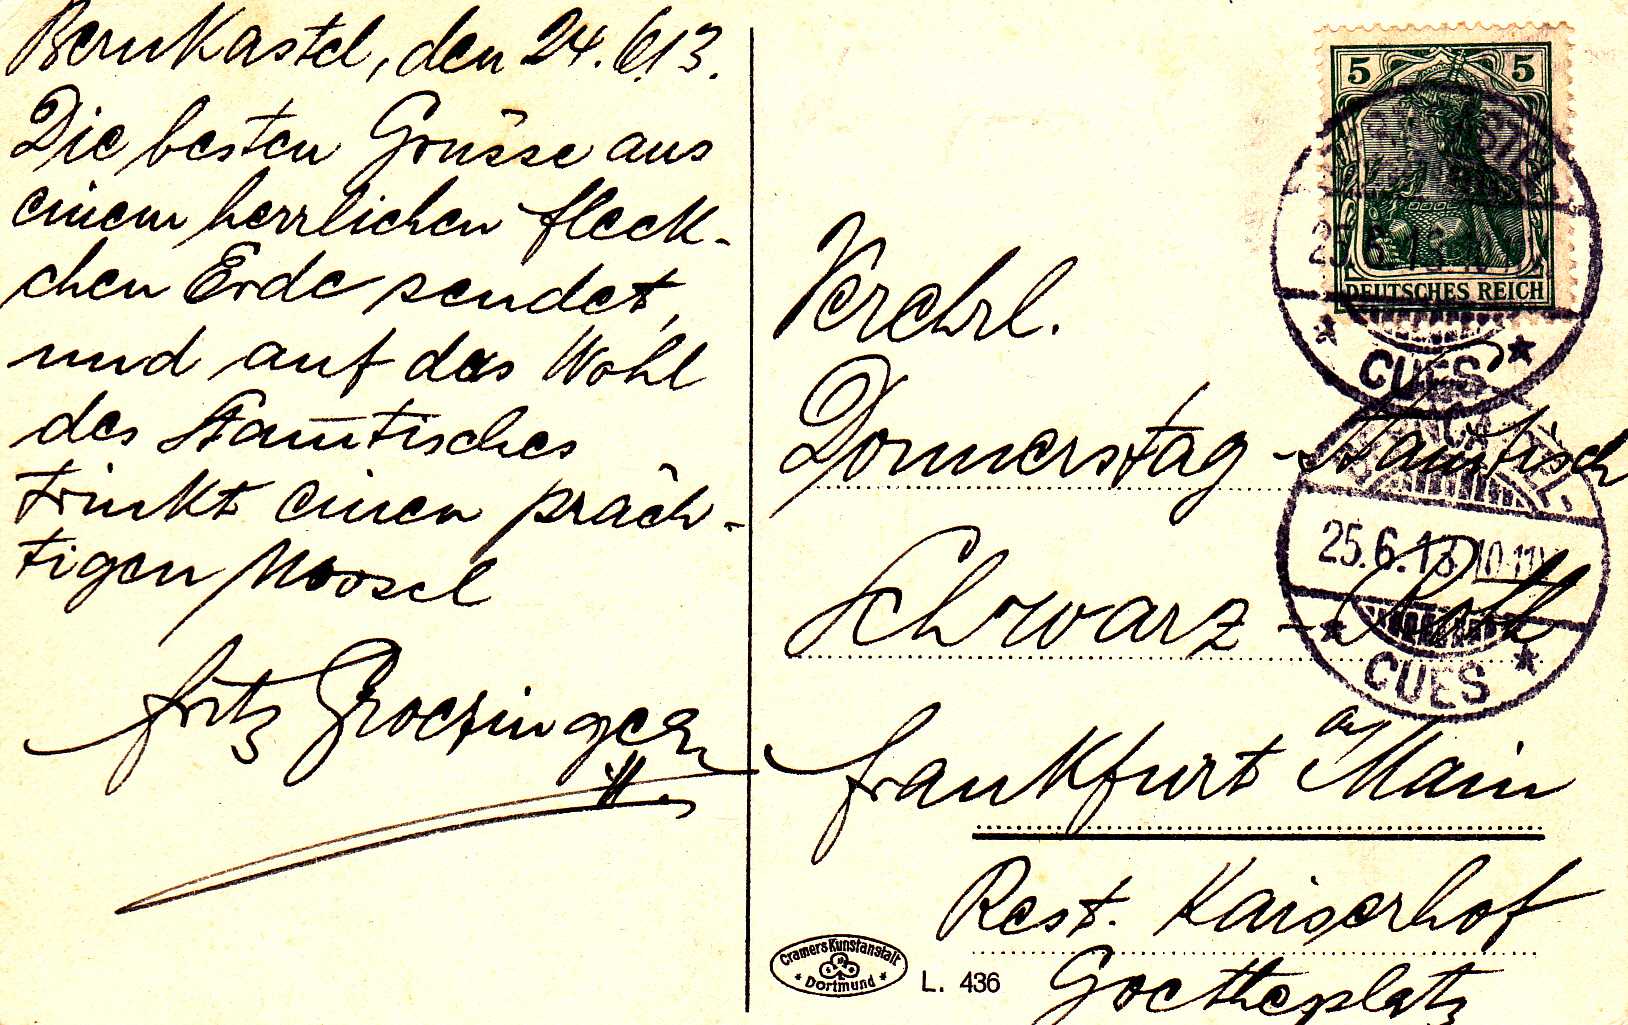 Bernkastel, den 24.6.13.
Die besten Grüsse aus
einem herrlichen Fleck-
chen Erde sendet,
und auf das Wohl
des Stam̅tisches
trinkt einen präch-
tigen Moosel
Fritz
5 5
DEUTSCHES REICH
25.6.13.
CUES
Verehrl.
Donnerstag-Stam̅tisch
Schwarz-Roth
25.6.13. 10-11V
CUES
Frankfurt a/Main
Rest. Kaiserhof
Goetheplatz
Cramers Kunstanstalt
Dortmund
L. 436